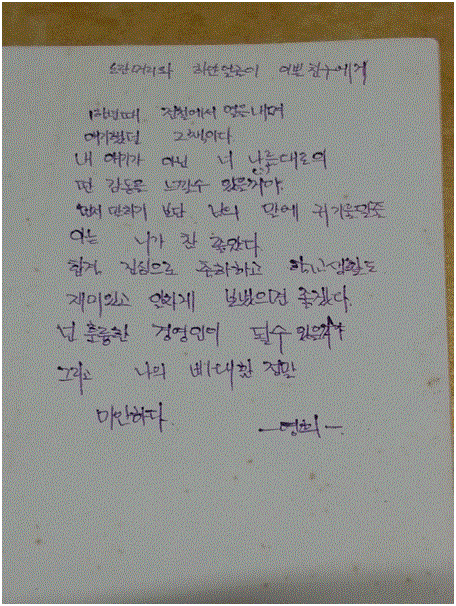 노란머리와 하얀얼굴이 이쁜 친구에게
1학년때 전철에서 열을내며
얘기했던 그책이다
내 얘기가 아닌 너 나름대로의
떤 감동을 느낄수 있을꺼야.
먼저 말하기 보단 남의 말에 귀기울일줄
아는 니가 참 좋았다
합격 진심으로 축하하고 학교생활도
재미있고 알차게 보냈으면 좋겠다.
넌 훌륭한 경영인이 될수 있을꺼야
그리고 나의 삐대함 정말
미안하다.
— 영희 —.